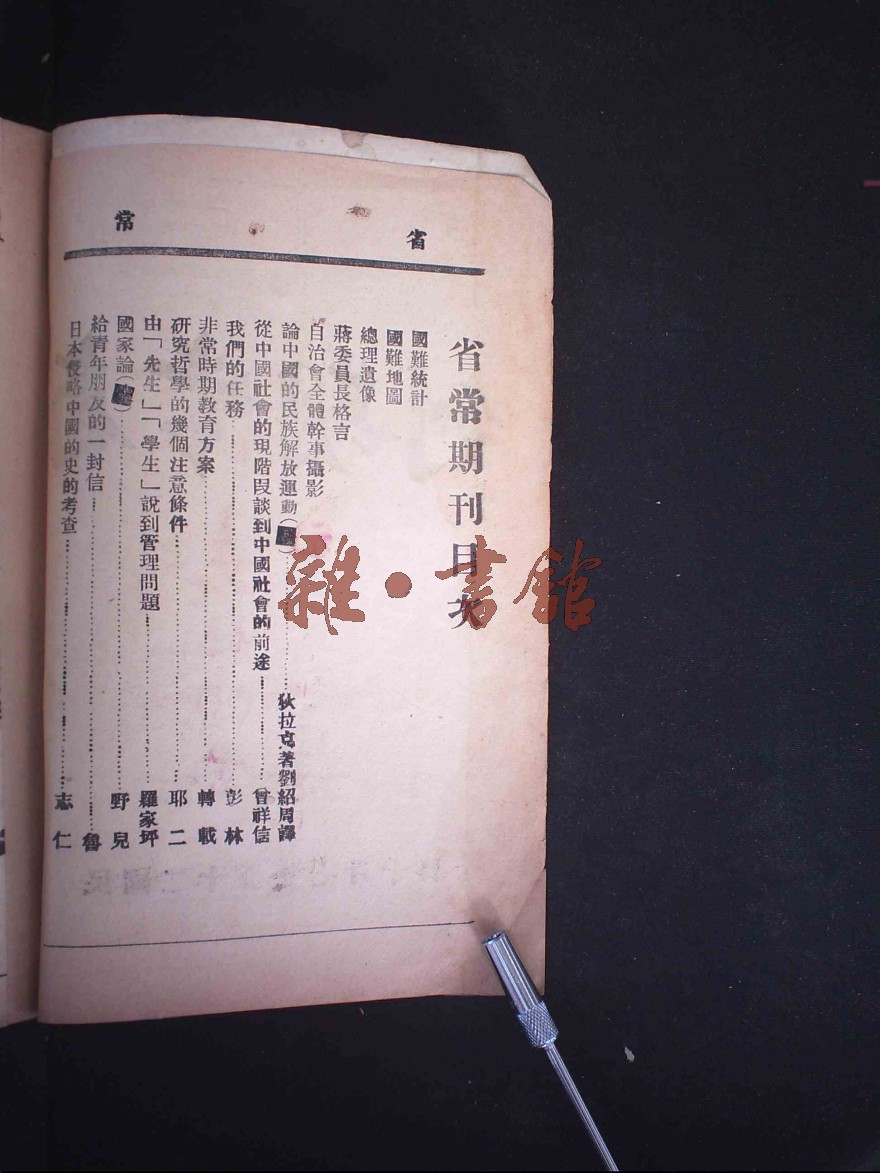 省 常
省常期刊目次
國難統計
國難地圖
總理遺像
蔣委員長格言
自治會全體幹事攝影
論中國的民族解放運動( )……狄拉克著劉紹周譯
從中國社會的現階段談到中國社會的前途……曾祥信
我們的任務……彭林
非常時期教育方案……轉載
研究哲學的幾個注意條件……耶二
由「先生」「學生」說到管理問題……羅家坪
國家論( )……野兒
給青年朋友的一封信……魯
日本侵略中國的史的考查……志仁
雜·書館